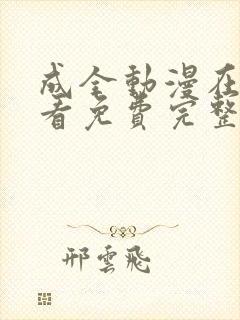 成全動漫在
看免費完整
邢雲飛